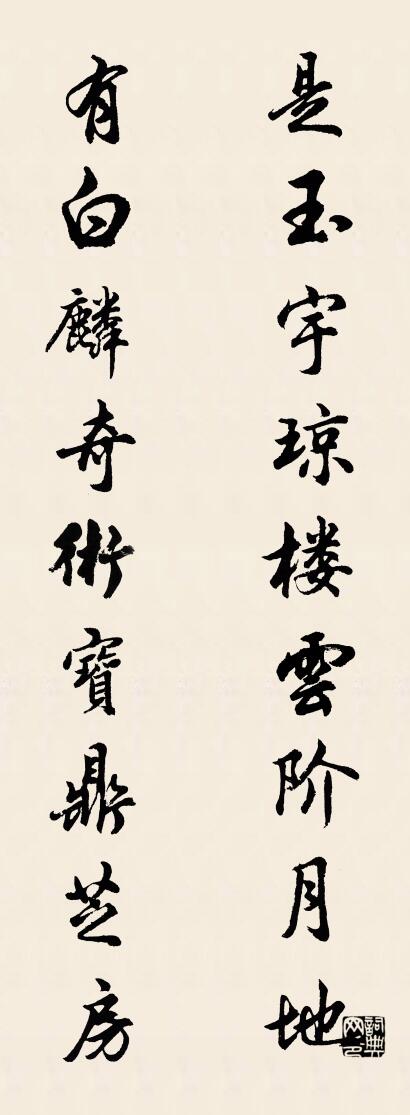 是玉宇琼楼雲阶月地
有白麟奇術寶鼎芝房
詞典网